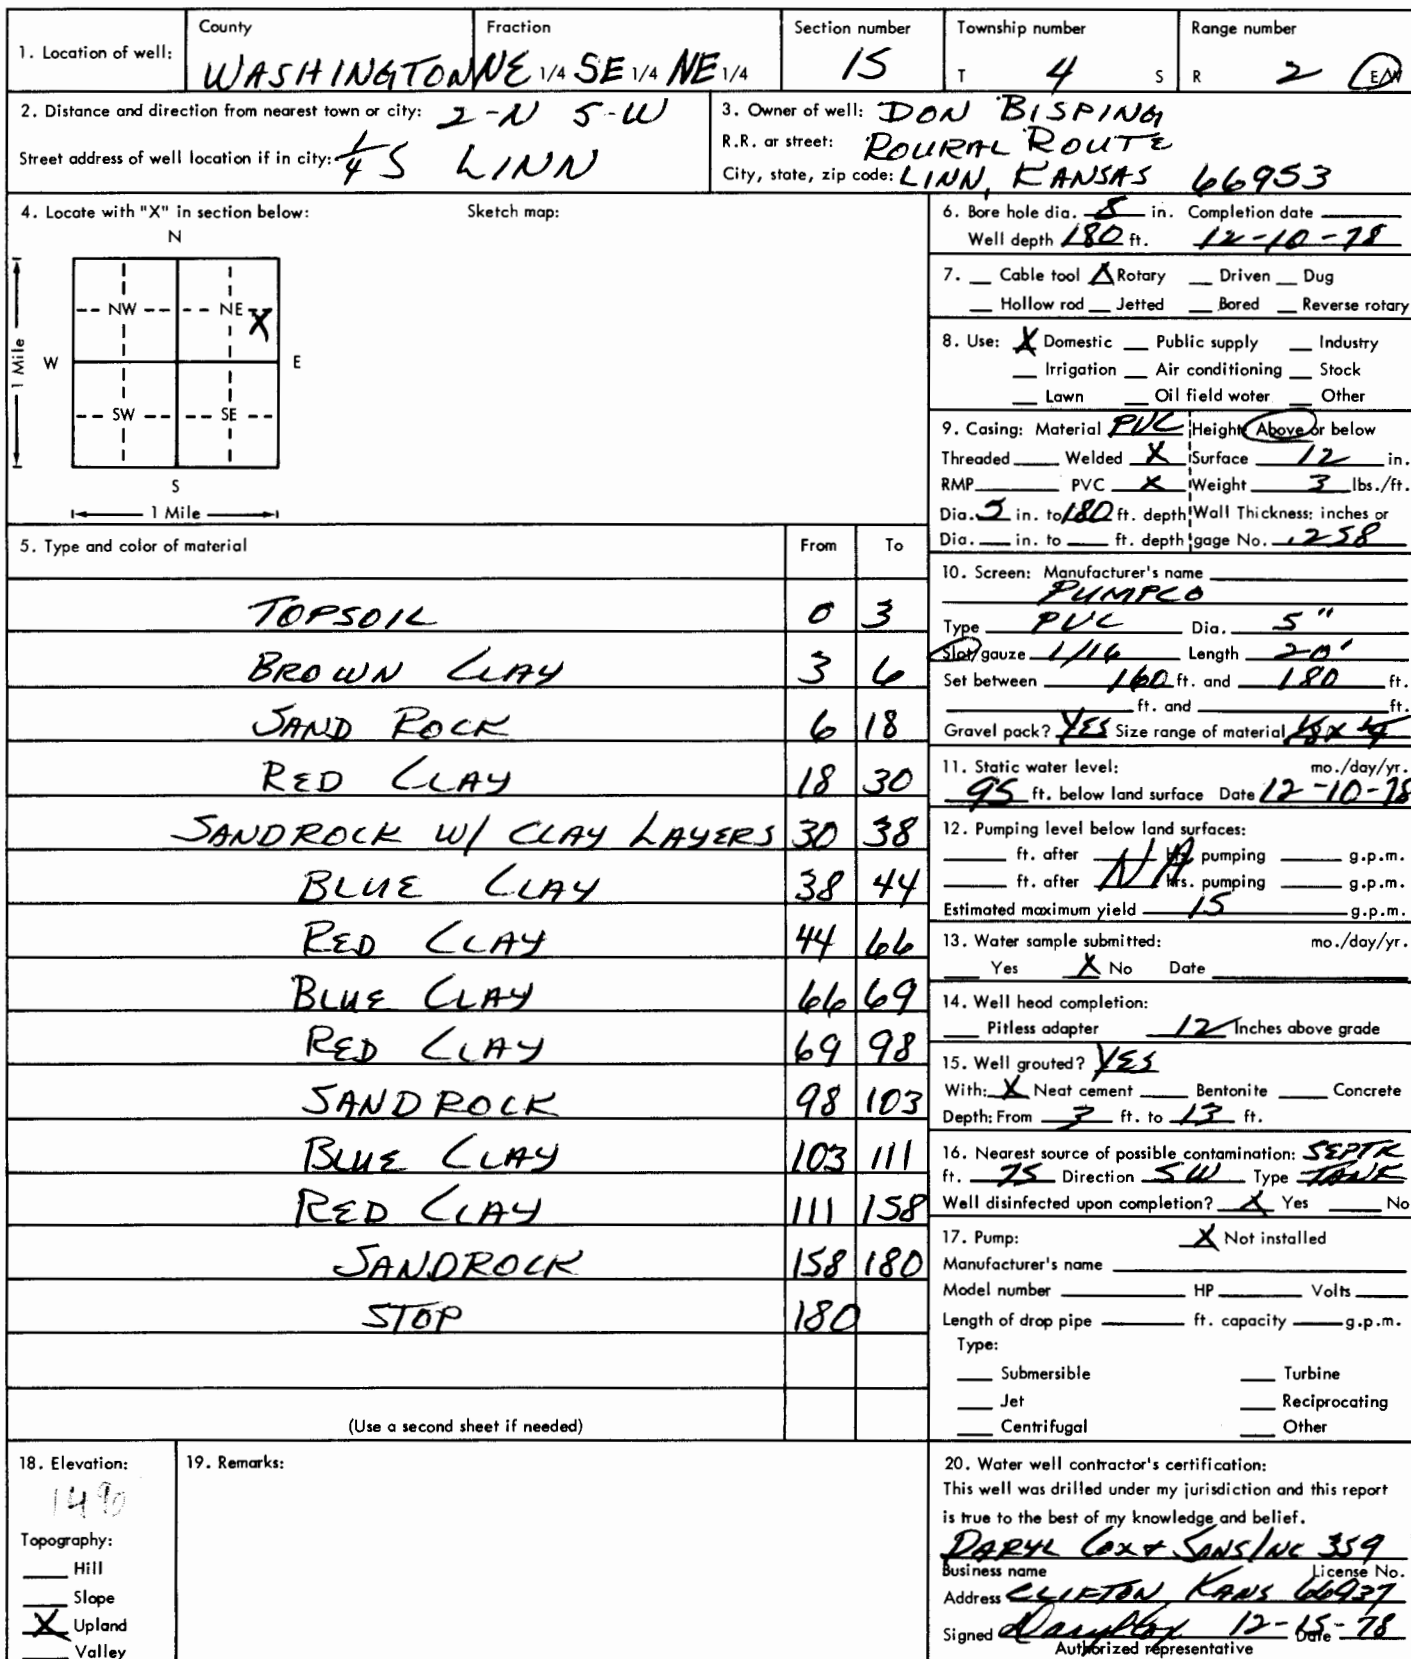 1. Location of well: County WASHINGTON Fraction NE 1/4 SE 1/4 NE 1/4 Section number 15 Township number T 4 S Range number R 2 E/W
2. Distance and direction from nearest town or city: 2-N 5-W
Street address of well location if in city: 1/4 S LINN
3. Owner of well: DON BISPING
R.R. or street: ROURAL ROUTE
City, state, zip code: LINN, KANSAS 66953
4. Locate with "X" in section below: Sketch map:
N
NW NE X
W E
1 Mile
SW SE
S
1 Mile
5. Type and color of material From To
TOPSOIL 0 3
BROWN CLAY 3 6
SAND ROCK 6 18
RED CLAY 18 30
SANDROCK W/ CLAY LAYERS 30 38
BLUE CLAY 38 44
RED CLAY 44 66
BLUE CLAY 66 69
RED CLAY 69 98
SANDROCK 98 103
BLUE CLAY 103 111
RED CLAY 111 158
SANDROCK 158 180
STOP 180
(Use a second sheet if needed)
6. Bore hole dia. 8 in. Completion date
Well depth 180 ft. 12-10-78
7. __ Cable tool X Rotary __ Driven __ Dug
__ Hollow rod __ Jetted __ Bored __ Reverse rotary
8. Use: X Domestic __ Public supply __ Industry
__ Irrigation __ Air conditioning __ Stock
__ Lawn __ Oil field water __ Other
9. Casing: Material PVC Height: Above or below
Threaded ____ Welded X Surface 12 in.
RMP ____ PVC X Weight 3 lbs./ft.
Dia. 5 in. to 180 ft. depth Wall Thickness: inches or
Dia. __ in. to __ ft. depth gage No. .258
10. Screen: Manufacturer's name
PUMPCO
Type PVC Dia. 5"
Slot/gauze 1/16 Length 20'
Set between 160 ft. and 180 ft.
____ ft. and ____ ft.
Gravel pack? YES Size range of material 1/8 x 1/4
11. Static water level: mo./day/yr.
95 ft. below land surface Date 12-10-78
12. Pumping level below land surfaces:
____ ft. after ____ hrs. pumping ____ g.p.m.
____ ft. after NA hrs. pumping ____ g.p.m.
Estimated maximum yield 15 g.p.m.
13. Water sample submitted: mo./day/yr.
__ Yes X No Date ____
14. Well head completion:
__ Pitless adapter 12 Inches above grade
15. Well grouted? YES
With: X Neat cement __ Bentonite __ Concrete
Depth: From 3 ft. to 13 ft.
16. Nearest source of possible contamination: SEPTIC
ft. 75 Direction SW Type TANK
Well disinfected upon completion? X Yes __ No
17. Pump: X Not installed
Manufacturer's name ____
Model number ____ HP ____ Volts ____
Length of drop pipe ____ ft. capacity ____ g.p.m.
Type:
__ Submersible __ Turbine
__ Jet __ Reciprocating
__ Centrifugal __ Other
18. Elevation:
1490
Topography:
__ Hill
__ Slope
X Upland
__ Valley
19. Remarks:
20. Water well contractor's certification:
This well was drilled under my jurisdiction and this report
is true to the best of my knowledge and belief.
DARYL COX & SONS INC 359
Business name License No.
Address CLIFTON, KANS 66937
Signed Daryl Cox 12-15-78 Date
Authorized representative